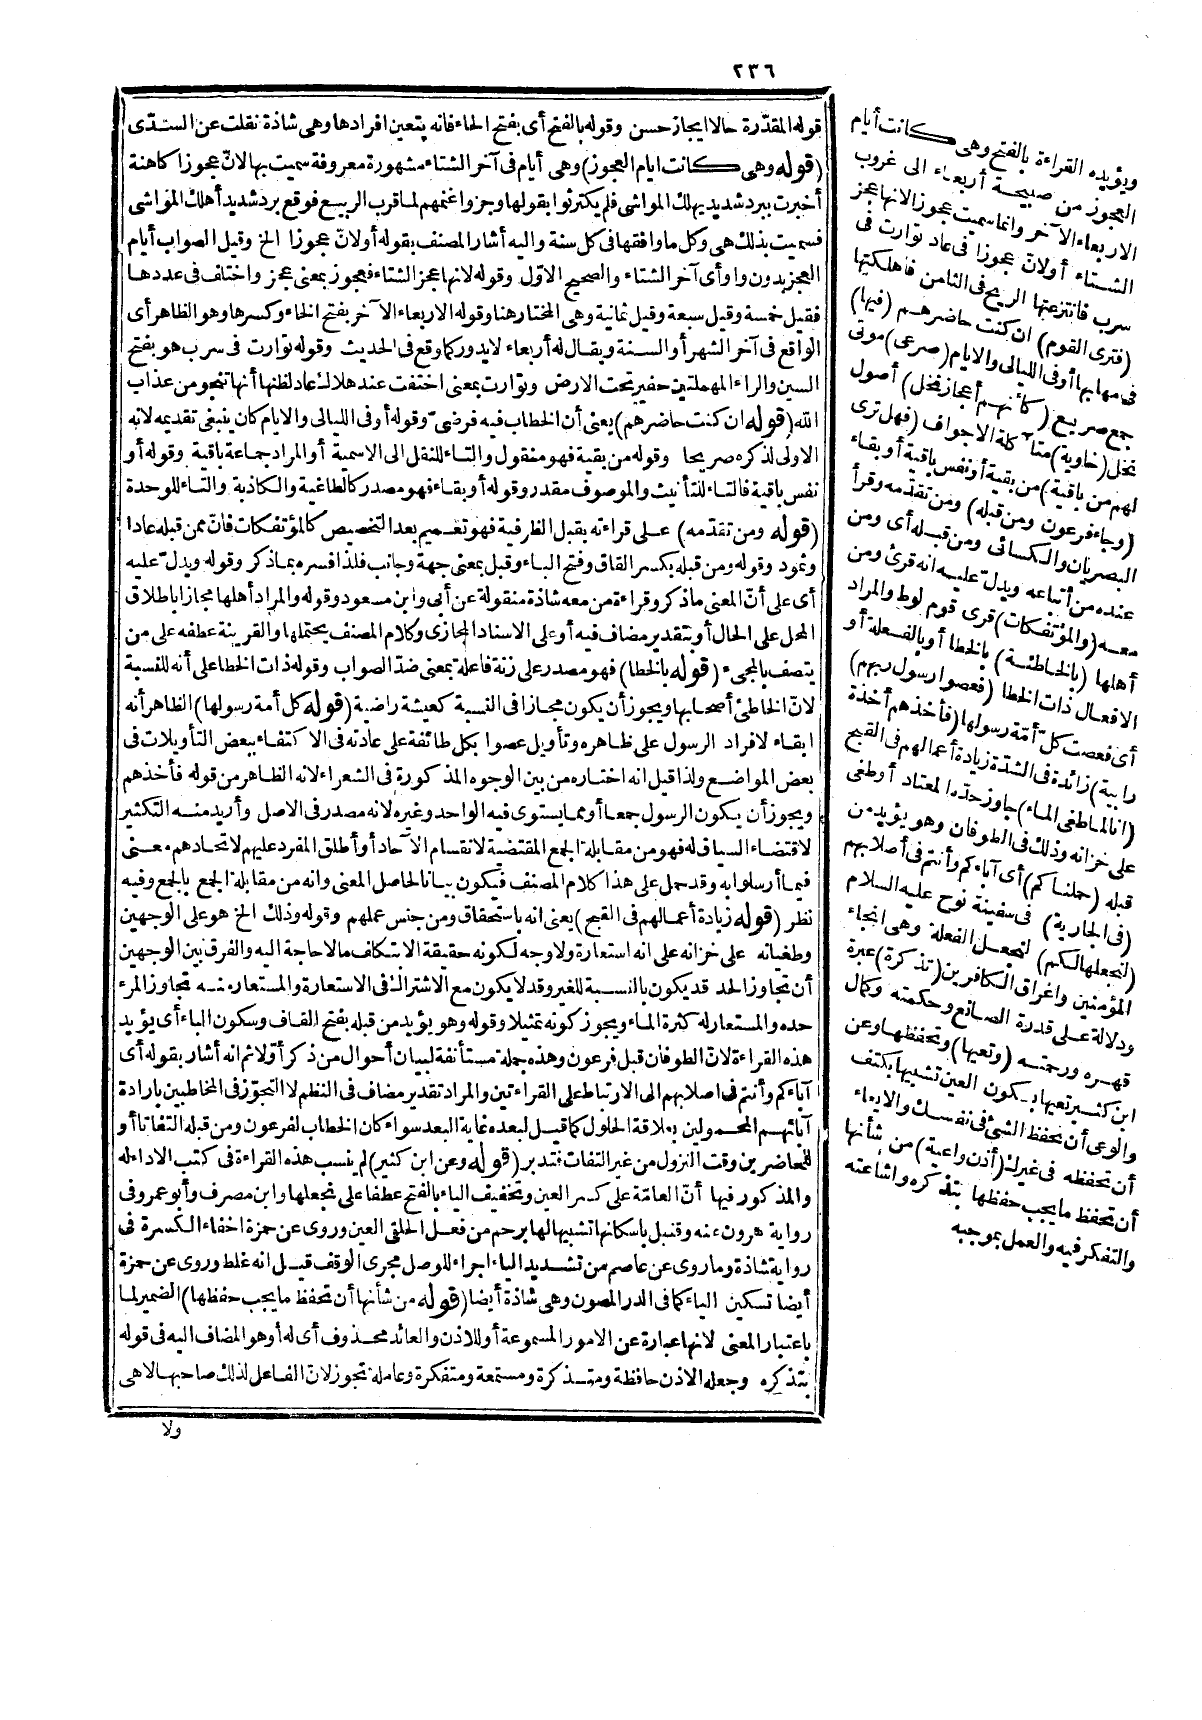 ٢٣٦
قوله المقدّرة حالا ايجاز حسن وقوله بالفتح أى بفتح الحاء فانه يتعين افرادها وهى شاذة نقلت عن السدّى
(قوله وهى كانت ايام العجوز) وهى أيام فى آخر الشتاء مشهورة معروفة سميت بها لانّ عجوزا كاهنة
أخبرت ببرد شديد يهلك المواشى فلم يكترثوا بقولها وجزوا غنمهم لما قرب الربيع فوقع برد شديد أهلك المواشى
فسميت بذلك هى وكل ما وافقها فى كل سنة واليه أشار المصنف بقوله أو لانّ عجوزا الخ وقيل الصواب أيام
العجز بدون واو أى آخر الشتاء والصحيح الاوّل وقوله لانها عجز الشتاء فعجوز بمعنى عجز واختلف فى عددها
فقيل خمسة وقيل سبعة وقيل ثمانية وهى المختار هنا وقوله الاربعاء الآخر بفتح الخاء وكسرها وهو الظاهر أى
الواقع فى آخر الشهر أو السنة ويقال له أربعاء لا يدور كما وقع فى الحديث وقوله توارت فى سرب هو بفتح
السين والراء المهملتين حفير تحت الارض وتوارت بمعنى اختفت عند هلاك عاد لظنها أنها تنجو من عذاب
الله (قوله ان كنت حاضرهم) يعنى أن الخطاب فيه فرضىّ وقوله أو فى الليالى والايام كان ينبغى تقديمه لانه
الاولى لذكره صريحا وقوله من بقية فهو منقول والتاء للنقل الى الاسمية أو المراد جماعة باقية وقوله أو
نفس باقية فالتاء للتأنيث والموصوف مقدر وقوله أو بقاء فهو مصدر كالطاغية والكاذبة والتاء للوحدة
(قوله ومن تقدّمه) على قراءته بقبل الظرفية فهو تعميم بعد التخصيص كالمؤتفكات فانّ ممن قبله عادا
وثمود وقوله ومن قبله بكسر القاف وفتح الباء وقبل بمعنى جهة وجانب فلذا فسره بما ذكر وقوله ويدلّ عليه
أى على أنّ المعنى ما ذكر وقراءة من معه شاذة منقولة عن أبى وابن مسعود وقوله والمراد أهلها مجازا باطلاق
المحل على الحال أو بتقدير مضاف فيه أو على الاسناد المجازى وكلام المصنف يحتملها والقرينة عطفه على من
يتصف بالمجىء (قوله بالخطا) فهو مصدر على زنة فاعلة بمعنى ضدّ الصواب وقوله ذات الخطا على أنه للنسبة
لانّ الخاطئ أصحابها ويجوز أن يكون مجازا فى النسبة كعيشة راضية (قوله كل أمة رسولها) الظاهر أنه
ابقاء لافراد الرسول على ظاهره وتأويل عصوا بكل طائفة على عادته فى الاكتفاء ببعض التأويلات فى
بعض المواضع ولذا قيل انه اختاره من بين الوجوه المذكورة فى الشعراء لانه الظاهر من قوله فأخذهم
ويجوز أن يكون الرسول جمعا أو مما يستوى فيه الواحد وغيره لانه مصدر فى الاصل وأريد منه التكثير
لاقتضاء السياق له فهو من مقابلة الجمع المقتضية لانقسام الآحاد أو أطلق المفرد عليهم لاتحادهم معنى
فيما أرسلوا به وقد حمل على هذا كلام المصنف فيكون بيانا لحاصل المعنى وانه من مقابلة الجمع بالجمع وفيه
نظر (قوله زيادة أعمالهم فى القبح) يعنى انه باستحقاق ومن جنس عملهم وقوله وذلك الخ هو على الوجهين
وطغيانه على خزانه على انه استعارة ولا وجه لكونه حقيقة الاستكاف مالا حاجة اليه والفرق بين الوجهين
أن تجاوز الحد قد يكون بالنسبة للغير وقد لا يكون مع الاشتراك فى الاستعارة والمستعار منه تجاوز المرء
حده والمستعار له كثرة الماء ويجوز كونه تمثيلا وقوله وهو يؤيد من قبله بفتح القاف وسكون الباء أى يؤيد
هذه القراءة لانّ الطوفان قبل فرعون وهذه جملة مستأنفة لبيان أحوال من ذكر أوّلا ثم انه أشار بقوله أى
آباءكم وأنتم فى اصلابهم الى الارتباط على القراءتين والمراد تقدير مضاف فى النظم لا التجوّز فى المخاطبين بارادة
آبائهم المحمولين بعلاقة الحلول كما قيل لبعده غاية البعد سواء كان الخطاب لفرعون ومن قبله التفاتا أو
للمعاصرين وقت النزول من غير التفات فتدبر (قوله وعن ابن كثير) لم ينسب هذه القراءة فى كتب الاداء له
والمذكور فيها أنّ العامّة على كسر العين وتخفيف الياء بالفتح عطفا على نجعلها وابن مصرف وأبو عمرو فى
رواية هرون عنه وقنبل باسكانها تشبيها لها برحم من فعل الحلقى العين وروى عن حمزة اخفاء الكسرة فى
رواية شاذة وما روى عن عاصم من تشديد الياء اجراء للوصل مجرى الوقف قيل انه غلط وروى عن حمزة
أيضا تسكين الياء كما فى الدر المصون وهى شاذة أيضا (قوله من شأنها أن تحفظ ما يجب حفظها) الضمير لما
باعتبار المعنى لانها عبارة عن الامور المسموعة أو للاذن والعائد محذوف أى له أو هو المضاف اليه فى قوله
بتذكره وجعله الاذن حافظة ومتذكرة ومستمعة ومتفكرة وعاملة تجوز لانّ الفاعل لذلك صاحبها لا هى
ولا
ويؤيده القراءة بالفتح وهى كانت أيام
العجوز من صبيحة أربعاء الى غروب
الاربعاء الآخر وانما سميت عجوزا لانها عجز
الشتاء أو لانّ عجوزا فى عاد توارت فى
سرب فانتزعتها الريح فى الثامن فأهلكتها
(فترى القوم) ان كنت حاضرهم (فيها)
فى مهابها أو فى الليالى والايام (صرعى) موتى
جمع صريع (كأنهم أعجاز نخل) أصول
نخل (خاوية) متأكلة الاجواف (فهل ترى
لهم من باقية) من بقية أو نفس باقية أو بقاء
(وجاء فرعون ومن قبله) ومن تقدّمه وقرأ
البصريان والكسائى ومن قبله أى ومن
عنده من أتباعه ويدلّ عليه انه قرئ ومن
معه (والمؤتفكات) قرى قوم لوط والمراد
أهلها (بالخاطئة) بالخطا أو بالفعلة أو
الافعال ذات الخطا (فعصوا رسول ربهم)
أى فعصت كلّ أمّة رسولها (فأخذهم أخذة
رابية) زائدة فى الشدّة زيادة أعمالهم فى القبح
(انا لما طغى الماء) جاوز حدّه المعتاد أو طغى
على خزانه وذلك فى الطوفان وهو يؤيد من
قبله (حملناكم) أى آباءكم وأنتم فى أصلابهم
(فى الجارية) فى سفينة نوح عليه السلام
(لنجعلها لكم) لنجعل الفعلة وهى انجاء
المؤمنين واغراق الكافرين (تذكرة) عبرة
ودلالة على قدرة الصانع وحكمته وكمال
قهره ورحمته (وتعيها) وتحفظها وعن
ابن كثير تعيها بسكون العين تشبيها بكتف
والوعى أن تحفظ الشئ فى نفسك والايعاء
أن تحفظه فى غيرك (أذن واعية) من شأنها
أن تحفظ ما يجب حفظها بتذكره واشاعته
والتفكر فيه والعمل بموجبه